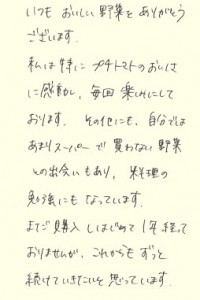 いつも おいしい野菜を ありがとう
ございます.
私は特に プチトマトのおいしさ
に感動し, 毎回 楽しみにして
おります. その他にも, 自分では
あまりスーパーで 買わない野菜
との出会いもあり, 料理の
勉強にもなっています.
まだご購入しはじめて1年経って
おりませんが, これからも ずっと
続けていきたいと思っています.